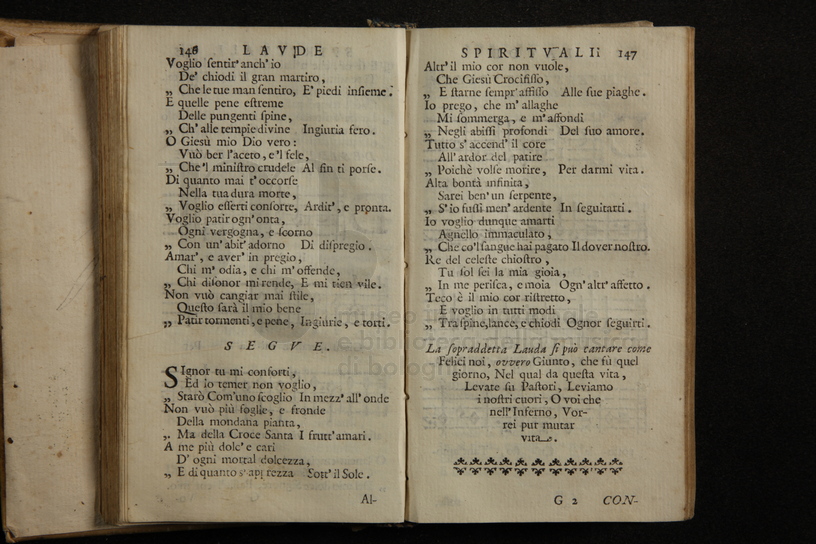 146 LAVDE
Voglio ſentir' anch' io
De' chiodi il gran martiro,
„ Che le tue man ſentiro, E' piedi inſieme.
E quelle pene eſtreme
Delle pungenti ſpine,
„ Ch' alle tempie divine Ingiuria fero.
O Giesù mio Dio vero:
Vuò ber l'aceto, e'l fele,
„ Che'l miniſtro crudele Al fin ti porſe.
Di quanto mai t' occorſe
Nella tua dura morte,
„ Voglio eſſerti conſorte, Ardit', e pronta.
Voglio patir ogn' onta,
Ogni vergogna, e ſcorno
„ Con un' abit' adorno Di diſpregio.
Amar', e aver' in pregio,
Chi m' odia, e chi m' offende,
„ Chi diſonor mi rende, E mi tien vile.
Non vuò cangiar mai ſtile,
Queſto ſarà il mio bene
„ Patir tormenti, e pene, Ingiurie, e torti.
SEGVE.
Signor tu mi conforti,
Ed io temer non voglio,
„ Starò Com'uno ſcoglio In mezz' all' onde
Non vuò più foglie, e fronde
Della mondana pianta,
„ Ma della Croce Santa I frutt' amari.
A me più dolc' e cari
D' ogni mortal dolcezza,
„ E di quanto s' apprezza Sott' il Sole.
Al-
SPIRITVALI 147
Altr' il mio cor non vuole,
Che Giesù Crocifiſſo,
„ E ſtarne ſempr' affiſſo Alle ſue piaghe.
Io prego, che m' allaghe
Mi ſommerga, e m' affondi
„ Negli abiſſi profondi Del ſuo amore.
Tutto s' accend' il core
All' ardor del patire
„ Poichè volſe morire, Per darmi vita.
Alta bontà infinita,
Sarei ben' un ſerpente,
„ S' io fuſſi men' ardente In ſeguitarti.
Io voglio dunque amarti
Agnello immaculato,
„ Che co'l ſangue hai pagato Il dover noſtro.
Re del celeſte chioſtro,
Tu ſol ſei la mia gioia,
„ In me periſca, e moia Ogn' altr' affetto.
Teco è il mio cor riſtretto,
E voglio in tutti modi
„ Tra ſpine, lance, e chiodi Ognor ſeguirti.
La ſopraddetta Lauda ſi può cantare come
Felici noi, ovvero Giunto, che fù quel
giorno, Nel qual da queſta vita,
Levate ſu Paſtori, Leviamo
i noſtri cuori, O voi che
nell' Inferno, Vor-
rei pur mutar
vita.
G 2 CON-